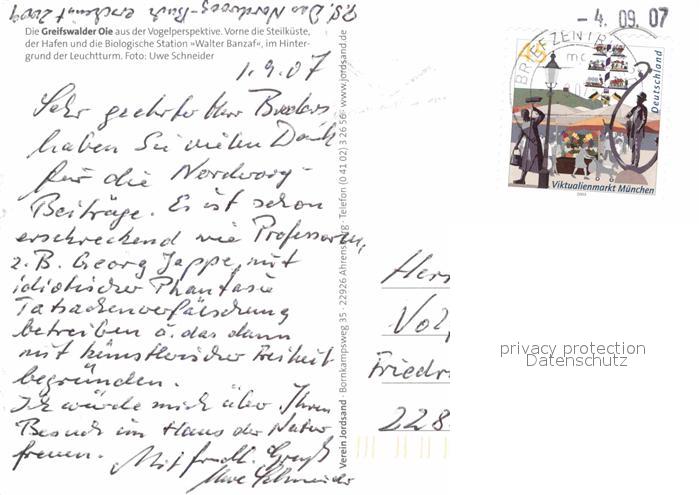 P.S. Das Nordwoog-Buch erscheint 2009
Die Greifswalder Oie aus der Vogelperspektive. Vorne die Steilküste,
der Hafen und die Biologische Station »Walter Banzaf«, im Hinter-
grund der Leuchtturm. Foto: Uwe Schneider
1.9.07
Sehr geehrter Herr
haben Sie vielen Dank
für die
Beiträge. Es ist schon
erschreckend wie Professoren,
z.B. Georg Jappe, mit
idiotischer Phantasie
Tatsachenverfälschung
betreiben u. das dann
mit künstlerischer Freiheit
begründen.
Ich würde mich über Ihren
Besuch im Haus der Natur
freuen. Mit frndl. Gruß
Uwe Schneider
Verein Jordsand · Bornkampsweg 35 · 22926 Ahrensburg · Telefon (0 41 02) 3 26 56 · www.jordsand.de
- 4. 09. 07
BRIEFZENTR
Deutschland
Viktualienmarkt München
Herr
Vol
Friedr
228
privacy protection
Datenschutz